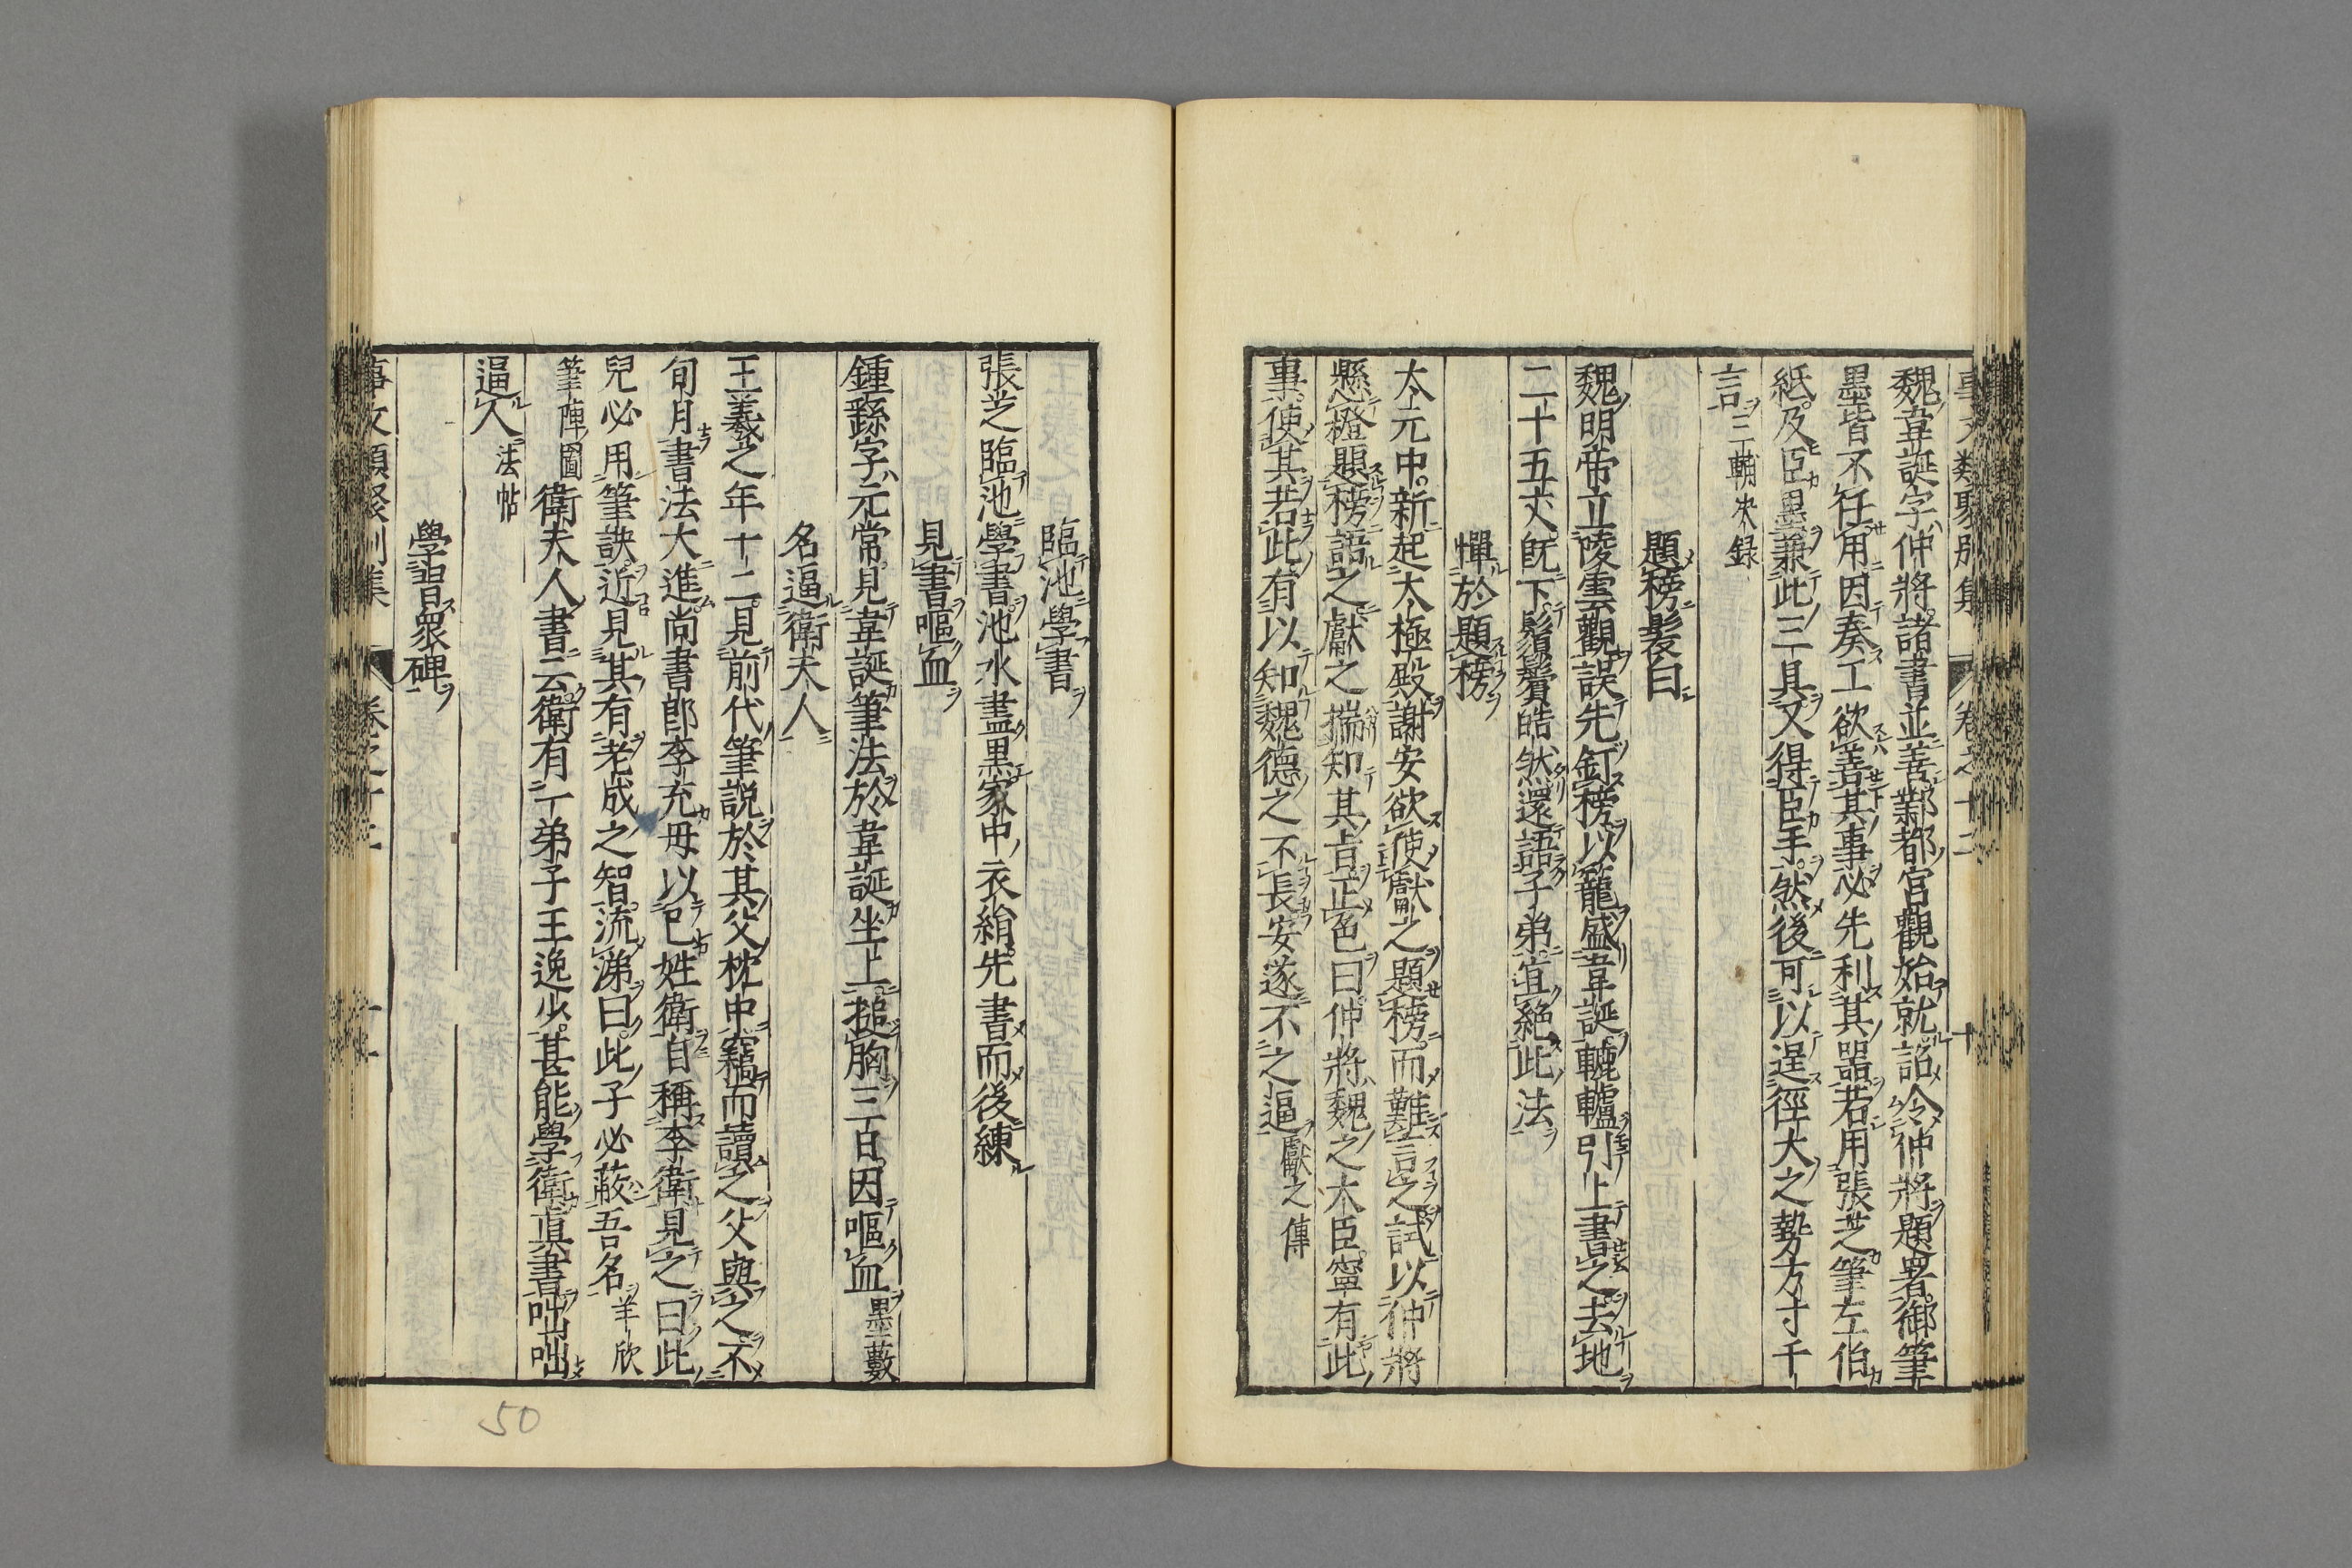 魏韋誕字仲將諸書並善鄴都宮觀始就詔令仲將題署御筆
墨皆不任用因奏工欲善其事必先利其器若用張芝筆左伯
紙及臣墨兼此三具又得臣手然後可以逞徑大之勢方寸千
言三輔決録
題榜髪白
魏明帝立陵雲觀誤先釘榜以籠盛韋誕轆轤引上書之去地
二十五丈既下鬚鬢皓然還語子弟宜絶此法
憚於題榜
太元中新起太極殿謝安欲使獻之題榜而難言之試以仲將
懸橙題榜語之獻之揣知其㫖正色曰仲將魏之大臣寧有此
事使其若此有以知魏德之不長安遂不之逼獻之傳
臨池學書
張芝臨池學書池水盡黒家中衣絹先書而後練
見書嘔血
鍾繇字元常見韋誕筆法於韋誕坐上搥胸三日因嘔血墨藪
名逼衛夫人
王羲之年十二見前代筆説於其父枕中竊而讀之父與之不
旬月書法大進尚書郎李充母以已姓衛自稱李衛見之曰此
兒必用筆訣近見其有老成之智流涕曰此子必蔽吾名羊欣
筆陣圖衛夫人書云衛有一弟子王逸少甚能學衛真書咄咄
逼人法帖
學習衆碑